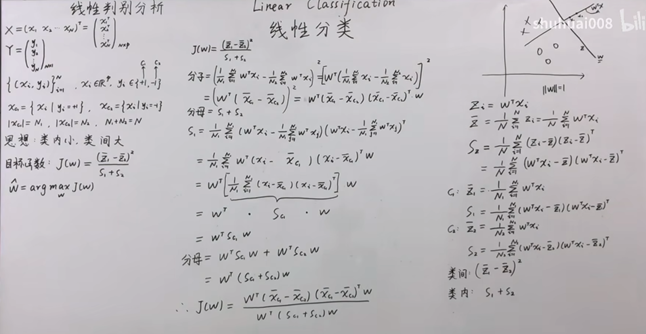 线性判别分析
X = (x₁ x₂ … x_N)ᵀ = (x₁ᵀ x₂ᵀ ⋮ x_Nᵀ)_{N×p}
Y = (y₁ y₂ ⋮ y_N)_{N×1}
{(xᵢ, yᵢ)}ᵢ₌₁ᴺ, xᵢ∈ℝᵖ, yᵢ∈{+1, -1}
x_{c₁} = {xᵢ | yᵢ=+1}, x_{c₂} = {xᵢ | yᵢ=-1}
|x_{c₁}| = N₁, |x_{c₂}| = N₂, N₁+N₂=N
思想: 类内小, 类间大
目标函数: J(w) = (z̄₁-z̄₂)² / (S₁+S₂)
ŵ = arg max_w J(w)
Linear Classification
线性分类
J(w) = (z̄₁-z̄₂)² / (S₁+S₂)
分子 = (1/N₁ Σ wᵀxᵢ - 1/N₂ Σ wᵀxᵢ)² = [wᵀ(1/N₁ Σ xᵢ - 1/N₂ Σ xᵢ)]²
= (wᵀ(x̄_{c₁} - x̄_{c₂}))² = wᵀ(x̄_{c₁} - x̄_{c₂})(x̄_{c₁} - x̄_{c₂})ᵀ·w
分母 = S₁+S₂
S₁ = 1/N₁ Σ (wᵀxᵢ - 1/N₁ Σ wᵀxⱼ)(wᵀxᵢ - 1/N₁ Σ wᵀxⱼ)ᵀ
= 1/N₁ Σ wᵀ(xᵢ - x̄_{c₁})(xᵢ - x̄_{c₁})ᵀ w
= wᵀ[1/N₁ Σ (xᵢ - x̄_{c₁})(xᵢ - x̄_{c₁})ᵀ] w
= wᵀ · S_{c₁} · w
= wᵀ S_{c₁} w
分母 = wᵀS_{c₁}w + wᵀS_{c₂}w
= wᵀ(S_{c₁}+S_{c₂})w
∴ J(w) = wᵀ(x̄_{c₁} - x̄_{c₂})(x̄_{c₁} - x̄_{c₂})ᵀw / wᵀ(S_{c₁}+S_{c₂})w
shuhuai008
bili
w
||w||=1
zᵢ = wᵀxᵢ
z̄ = 1/N Σ zᵢ = 1/N Σ wᵀxᵢ
S_z = 1/N Σ (zᵢ-z̄)(zᵢ-z̄)ᵀ
= 1/N Σ (wᵀxᵢ-z̄)(wᵀxᵢ-z̄)ᵀ
C₁: z̄₁ = 1/N₁ Σ wᵀxᵢ
S₁ = 1/N₁ Σ (wᵀxᵢ-z̄₁)(wᵀxᵢ-z̄₁)ᵀ
C₂: z̄₂ = 1/N₂ Σ wᵀxᵢ
S₂ = 1/N₂ Σ (wᵀxᵢ-z̄₂)(wᵀxᵢ-z̄₂)ᵀ
类间: (z̄₁ - z̄₂)²
类内: S₁+S₂